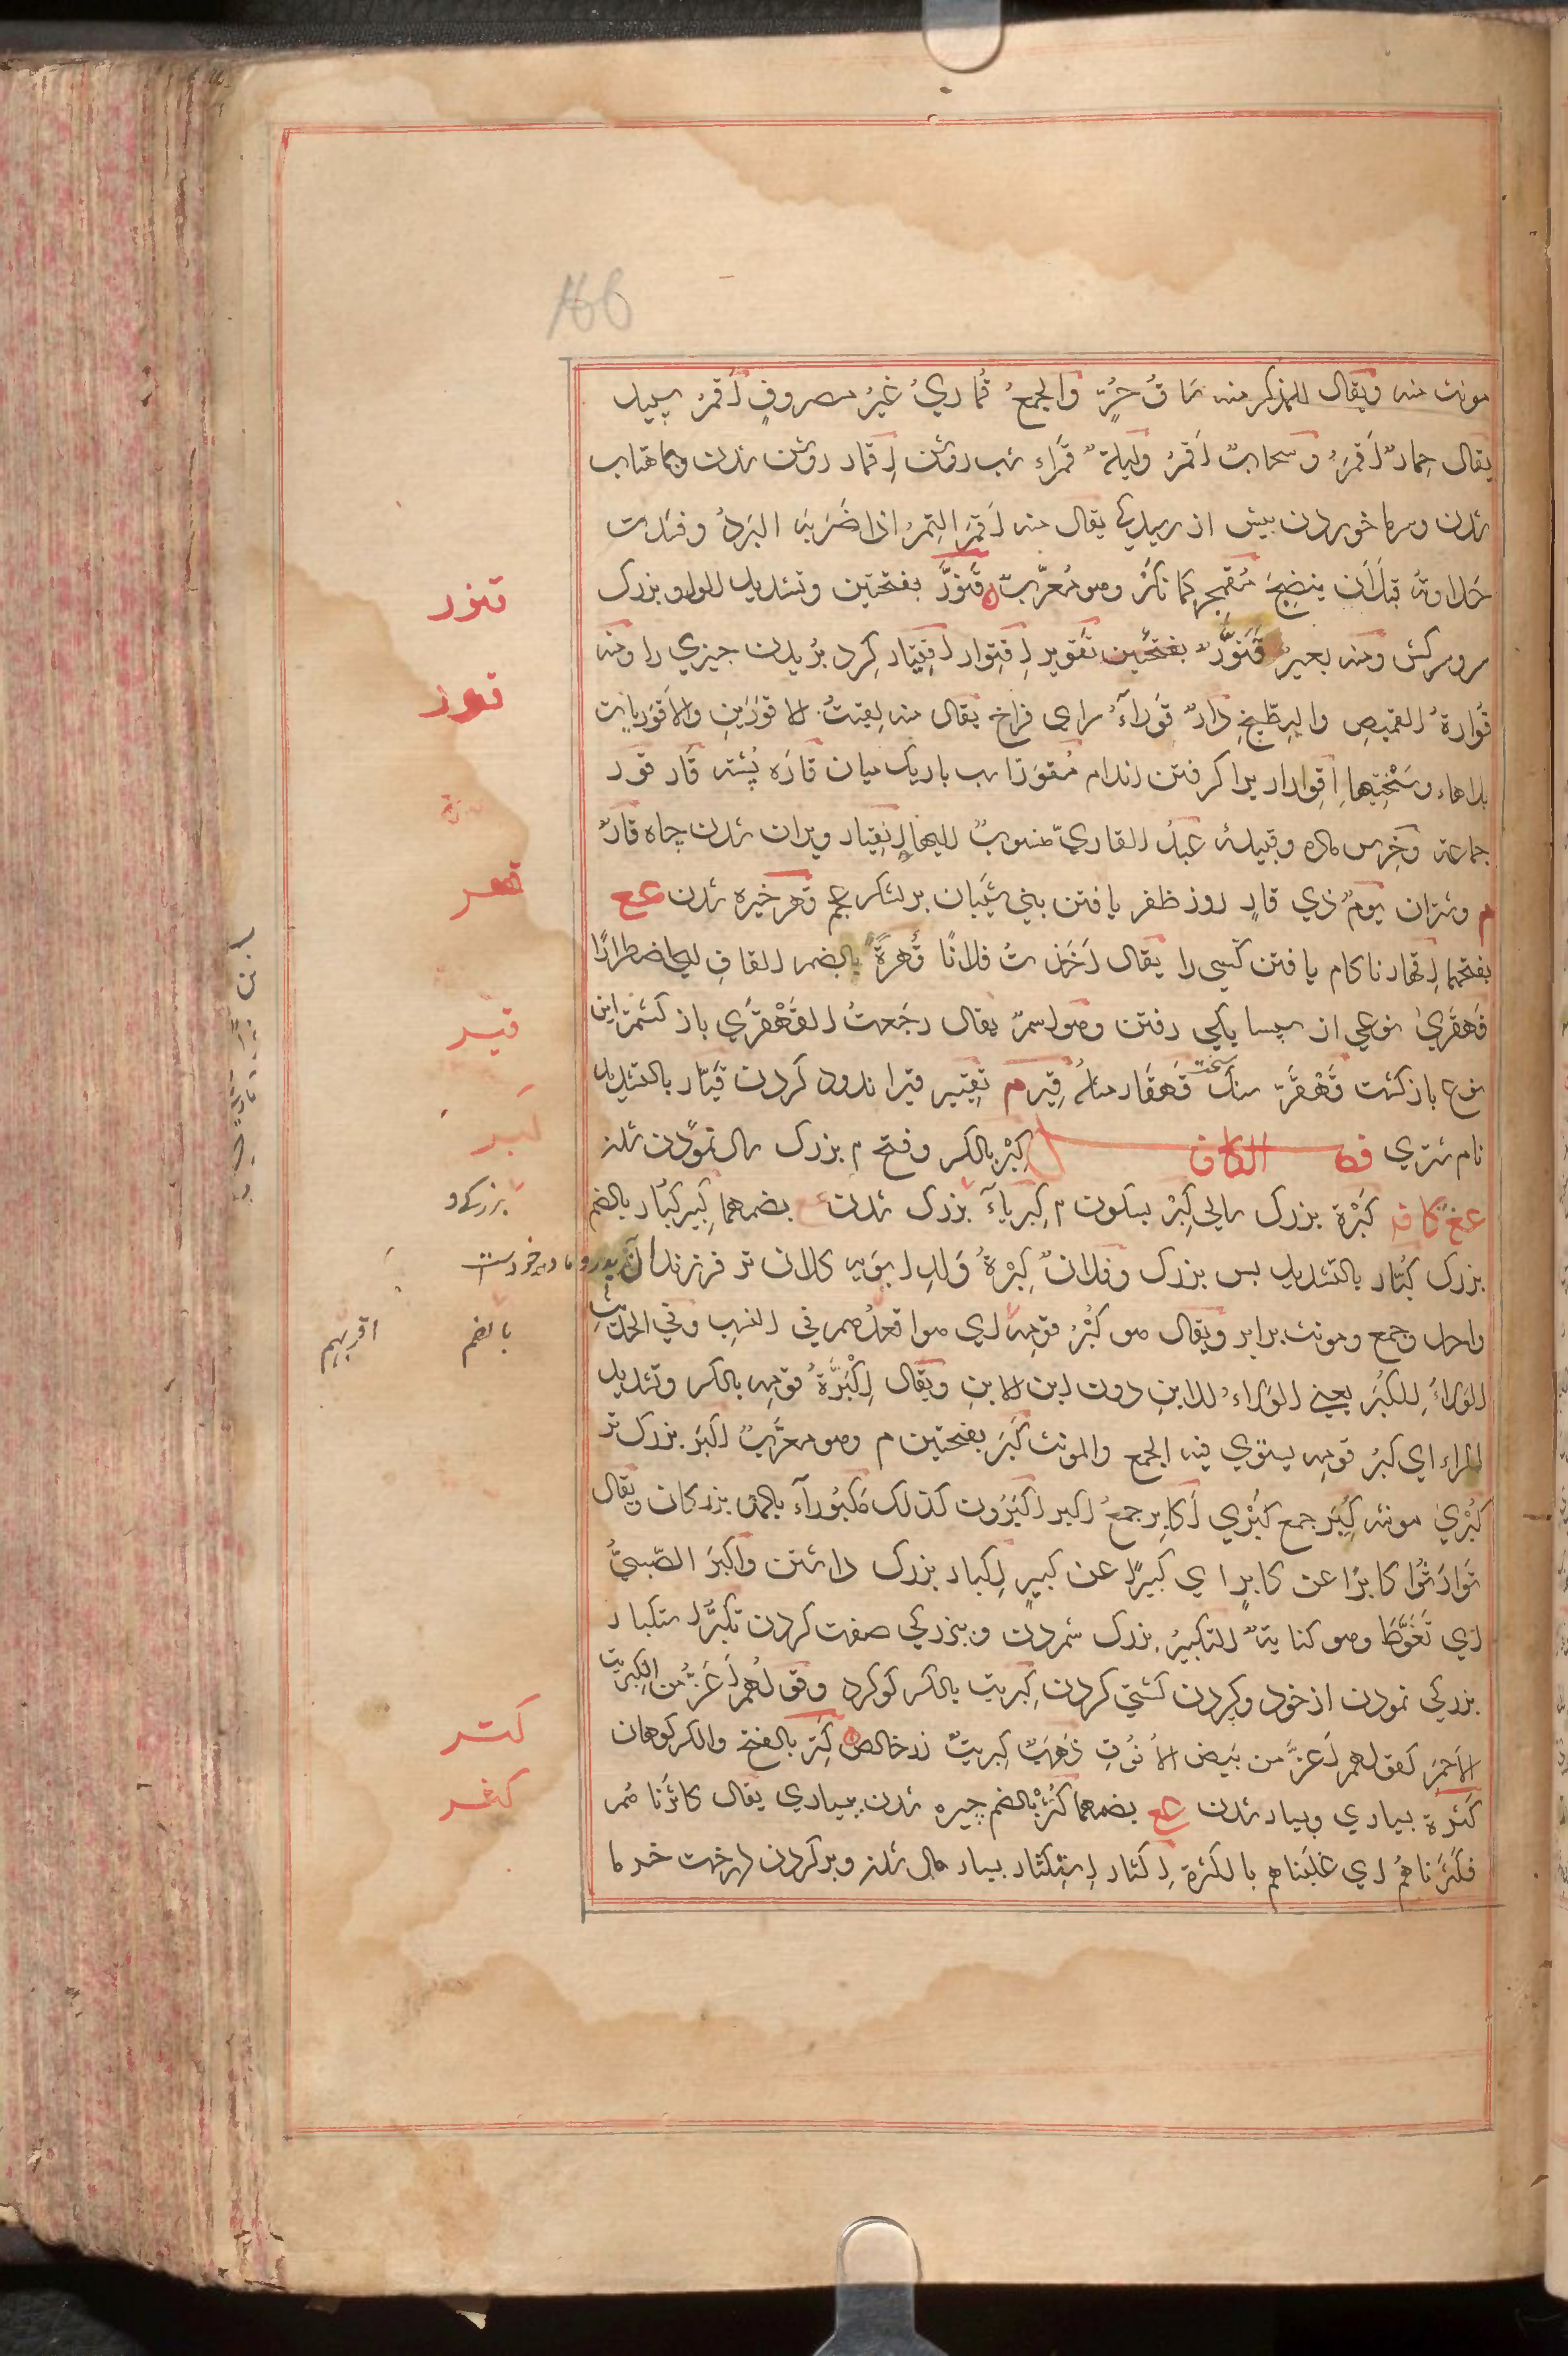 166
مونث منه ويقال للمذكر منه ساقُ حُرٍّ والجمعُ قُماريُ غيرُ مصروفٍ أقمرُ سپید
يقال حِمارٌ أقمرُ وسحابٌ أقمرُ وليلةٌ قمراء شب روشن إقمار روشن شدن وبماهتاب
شدن وسرما خوردن پیش از رسیدگی يقال منه أقمرَ التمرُ إذا ضَرَبَه البَردُ وفسدت
حَلاوتهُ قبل أن ينضجَ مُقمجِر كمانگر وهو مُعرّبٌ قَنَوَّر بفتحتين وتشديد الواو بزرک
سر وسرکش ومنه بعيرٌ قَنَوَّرٌ بفتحتين تقوير إقتوار إقتيار گرد بریدن چیزی را ومنه
قُوارةُ القميصِ والبِطّيخِ دارٌ قَوراءُ سرای فراخ يقال منه لقيتُ الاقورَينِ والاقوريات
بلاها وسختيها إقورار برا گرفتن اندام مُقوَرّ اسب باریک میان قاره پُشته قار قور
جماعة وخرس ماده وقبيلة عبدُ القاريّ منسوبٌ إليها إنقيار ویران شدن چاه قارٌ
م وشتران يومُ ذي قارٍ روز ظفر یافتن بني شَيبان بر لشکر عجم قهر خیره شدن عع
بفتحهما إقهار ناکام یافتن کسی را يقال أخذتُ فلانًا قُهرَةً بالضم القاف أي اضطرارًا
قَهقَرىٰ نوعی از سپسایگی رفتن وهو اسمٌ يقال رجَعتُ القَهْقَرىٰ باز گشتم این
نوع باز گشت قَهْقَرّ سنگ سخت قَهقار مثلهُ قِير م تقيير قیر اندود کردن قَيّار بالتشديد
نام شتری فصل الكاف كِبْر بالكسر وفتح م بزرگ سال نمودن شدن
عغ كافه كَبْرَة بزرگ سالی كِبْر بسكون م كِبرِياءُ بزرگ شدن عع بضمهما كَبير كُبار بالضم
بزرگ كُبّار بالتشديد بس بزرگ وفلانٌ كِبْرَةُ وَلدِ أبويه کلان تر فرزندان پدر و مادر خودست
واحد وجمع ومونث برابر ويقال هو كُبْرُ قومِه أي هو اقعدُهم في النسب وفي الحديث
الوَلاءُ لِلكُبْر يعني الوَلاءُ للابنِ دون ابن الابنِ ويقال إكْبِرَّةُ قومِه بالكسر وتشديد
الراء اي كبرُ قومِه يستوي فيه الجمع والمونث كَبَر بفتحتين م وهو معرَّبٌ أكبَر بزرگ تر
كُبْرىٰ مونثه كُبَر جمع كُبْرىٰ أكابِر جمعُ أكبر أكبَرُون كذلك مَكبُوراءُ بالمد بزرگان ويقال
تَوارَثُوا كابِرًا عن كابِرٍ اي كبيرًا عن كبيرٍ إكبار بزرگ داشتن واكبرَ الصَّبيُّ
أي تَغَوَّطَ وهو كنايةٌ التكبيرُ بزرگ شمردن و ببزرگی صفت کردن تكبُّر استكبار
بزرگی نمودن از خود وکبردن گشتی کردن كِبريت بالكسر گوگرد وقولُهم أعَزُّ من الكبريت
الاحمر كقولهم أعَزُّ من بَيض الأنُوقِ ذَهَبٌ كِبريتٌ زر خالص كَتر بالفتح والكسر کوهان
كَثرة بسیاری وبسیار شدن عع بضمهما كُثْر بالضم چیره شدن ببسیاری يقال كاثَرْناهُم
فكَثَرناهُم أي غلبناهم بالكثرة إكثار إستكثار بسیار مال شدن وبر کردن درخت خرما
قنور
قور
قهر
قير
كبر
بزرگ و
بالضم
اقربهم
كتر
كثر